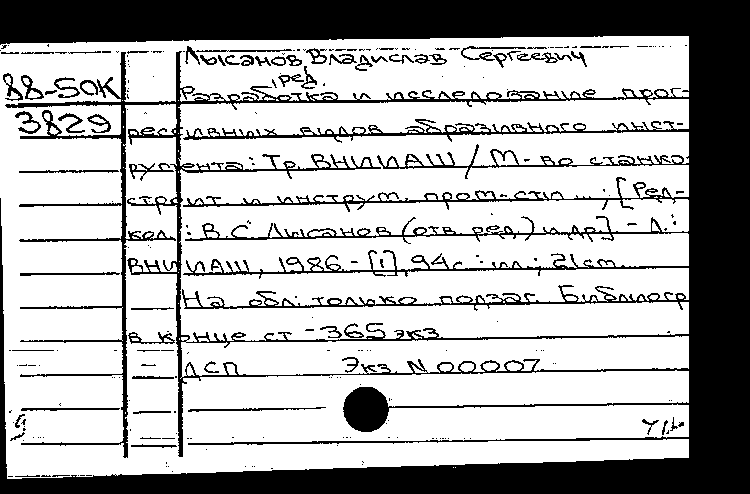 Лысанов Владислав Сергеевич
, ред.
88-50К
Разработка и исследование прог-
3829
рессивных видов абразивного инст-
румента: Тр. ВНИИАШ / М-во станко-
строит. и инструм. пром-сти ... ; [Ред-
кол.: В.С. Лысанов (отв. ред.) и др.] - Л.:
ВНИИАШ, 1986. - [1], 94 с.: ил.; 21 см.
На обл. только подзаг. Библиогр.
в конце ст. - 365 экз.
ДСП Экз. N 00007
9